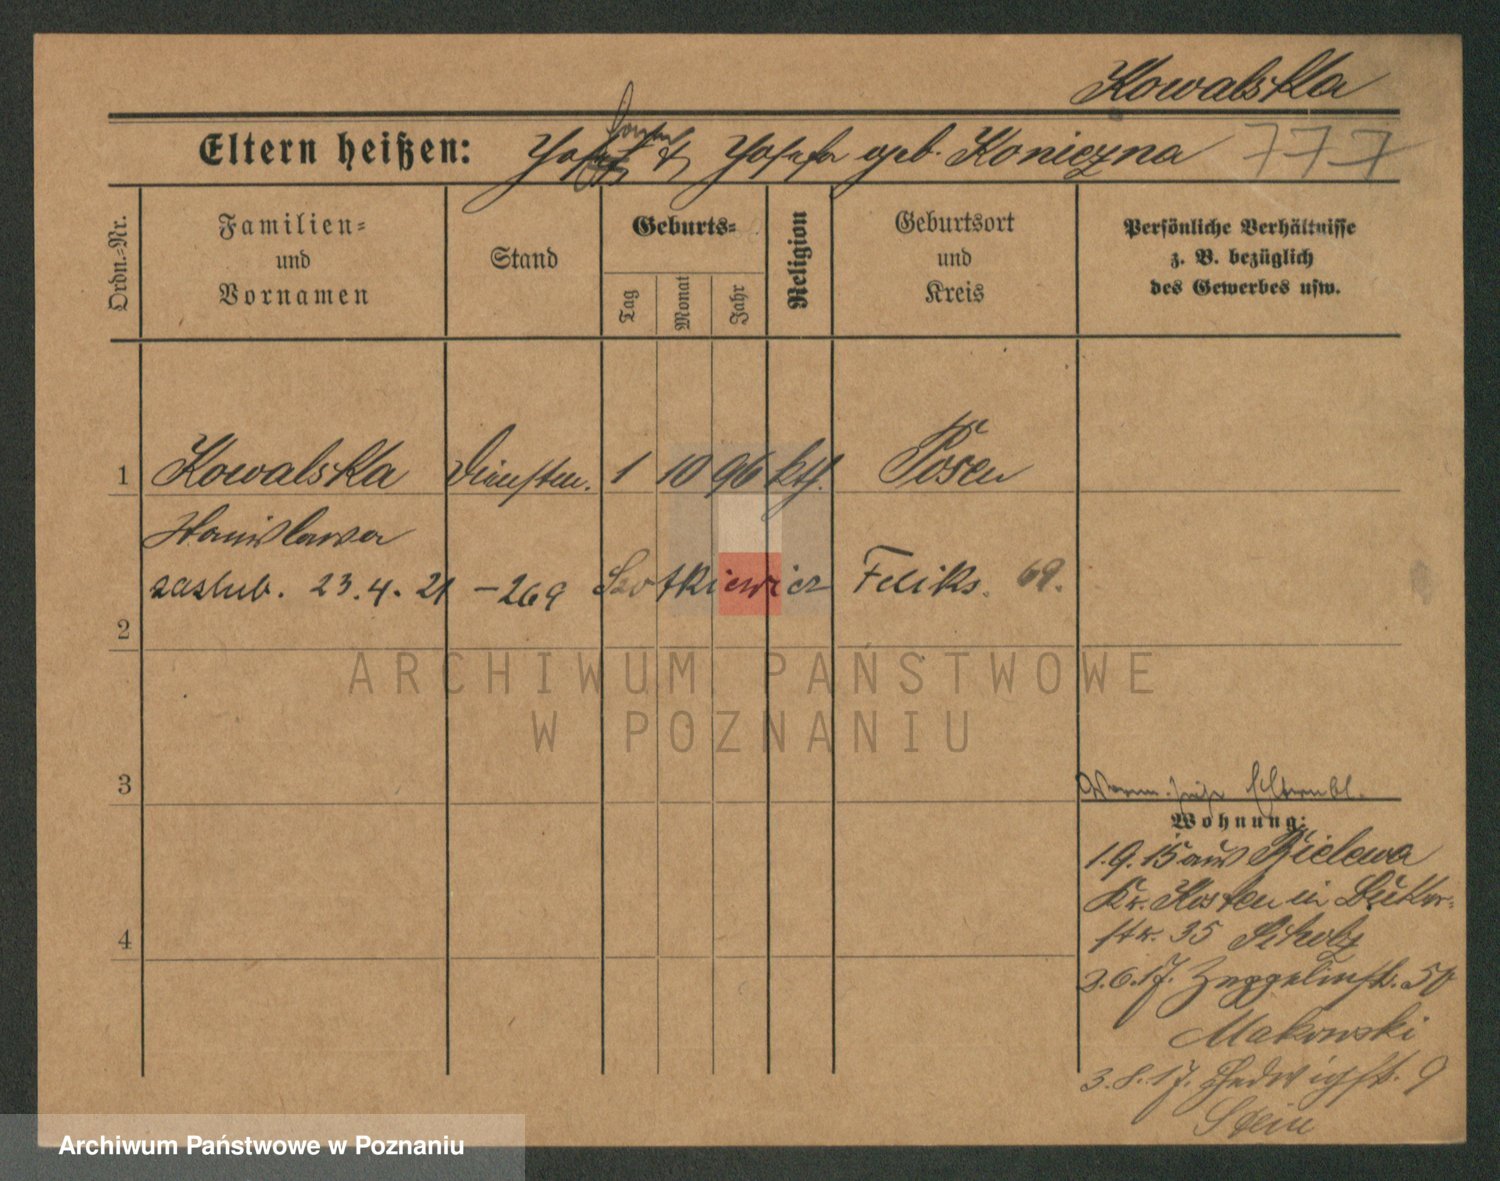 Kowalska
Eltern heißen: Josefa geb. Konieczna 777
Ordn.=Nr.
Familien=
und
Vornamen
Stand
Geburts=
Tag
Monat
Jahr
Religion
Geburtsort
und
Kreis
Persönliche Verhältnisse
z. B. bezüglich
des Gewerbes usw.
1 Kowalska Dienstm. 1 10 96 kth. Posen
Stanislawa
zaslub. 23.4.21 -269 Szotkiewicz Feliks. 69.
2
ARCHIWUM PAŃSTWOWE
W POZNANIU
3
Wohnung:
1.9.15 aus Bielewo
Kr. Kosten in Buker=
4
str. 35
2.6.17. Zeppelinstr. 50
Makowski
3.8.17. Hedwigstr. 9
Stein
Archiwum Państwowe w Poznaniu